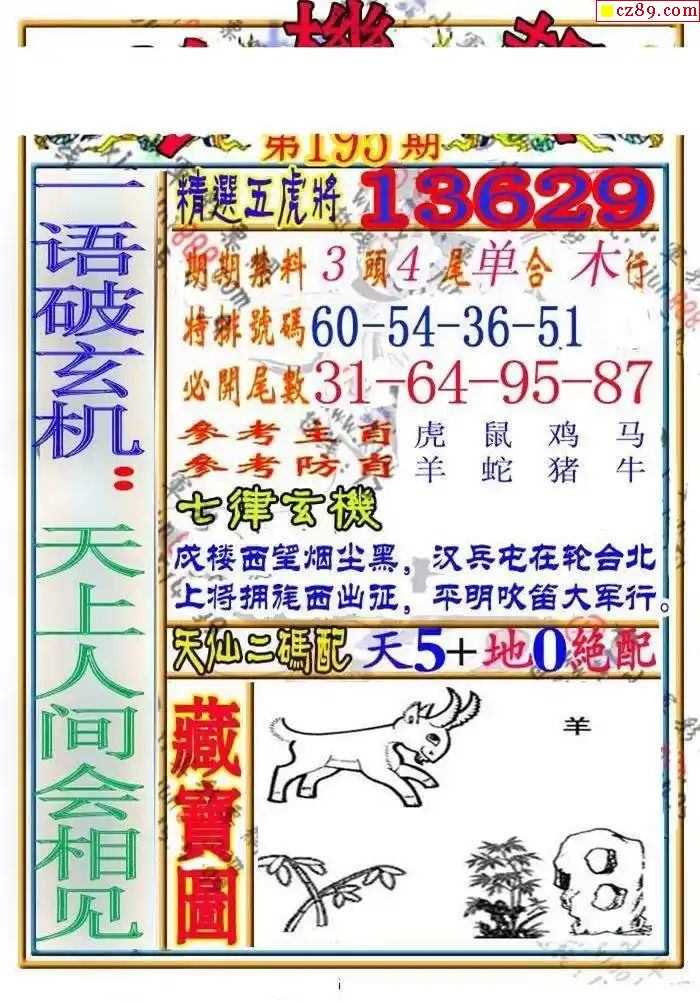 cz89.com
機
第195期
一语破玄机：天上人间会相见
精選五虎將 13629
期期禁料 3頭4尾单合木行
特排號碼 60-54-36-51
必開尾數 31-64-95-87
參考主肖 虎 鼠 鸡 马
參考防肖 羊 蛇 猪 牛
七律玄機
戍楼西望烟尘黑，汉兵屯在轮台北
上将拥旄西出征，平明吹笛大军行。
天仙二碼配 天5+地0絕配
藏寶圖
羊